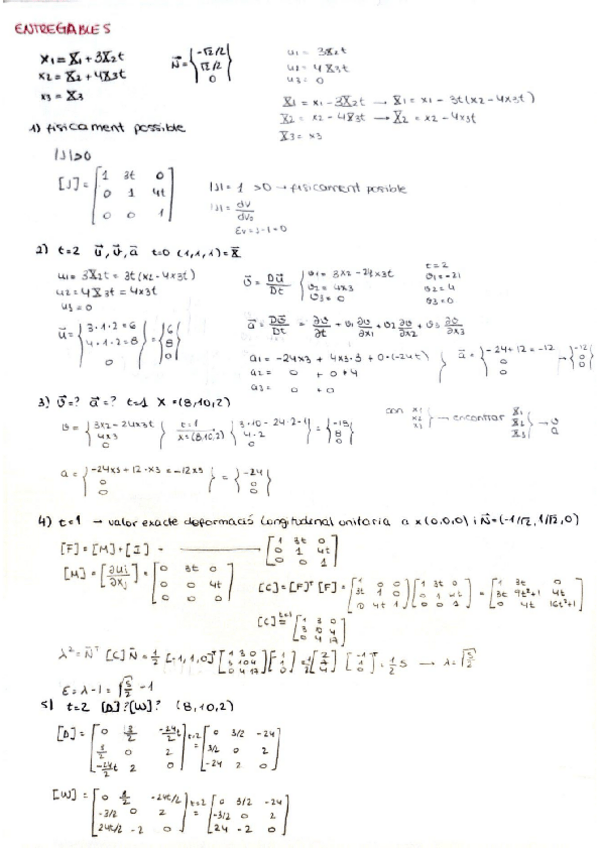 ENTREGABLES
x1 = X1 + 3X2t
x2 = X2 + 4X3t
x3 = X3
N = {-√2/2, √2/2, 0}
u1 = 3X2t
u2 = 4X3t
u3 = 0
X1 = x1 - 3X2t → X1 = x1 - 3t(x2 - 4x3t)
X2 = x2 - 4X3t → X2 = x2 - 4x3t
X3 = x3
1) físicament possible
|J|>0
[J] = [1 3t 0; 0 1 4t; 0 0 1]
|J| = 1 >0 → físicament posible
|J| = dV/dV0
Ev = J-1 = 0
2) t=2 u, v, a t=0 (1,1,1) = X
u1 = 3X2t = 3t(x2 - 4x3t)
u2 = 4X3t = 4x3t
u3 = 0
v = Du/Dt {v1 = 3x2 - 24x3t, v2 = 4x3, v3 = 0
t=2
v1 = -21
v2 = 4
v3 = 0
u = {3·1·2 = 6, 4·1·2 = 8, 0} = {6, 8, 0}
a = Dv/Dt = ∂v/∂t + v1 ∂v/∂x1 + v2 ∂v/∂x2 + v3 ∂v/∂x3
a1 = -24x3 + 4x3·3 + 0·(-24t)
a2 = 0 + 0 + 4
a3 = 0 + 0
a = {-24+12 = -12, 0, 0} → {-12, 0, 0}
3) v=? a=? t=1 x=(8,10,2)
v = {3x2 - 24x3t, 4x3, 0} t=1 x=(8,10,2) {3·10 - 24·2·1, 4·2, 0} = {-18, 8, 0}
con x1 x2 x3 → encontrar X1 X2 X3 → v a
a = {-24x3 + 12·x3 = -12x3, 0, 0} = {-24, 0, 0}
4) t=1 → valor exacte deformació longitudinal unitaria a x(0,0,0) i N=(-1/√2, 1/√2, 0)
[F] = [M] + [I] → [1 3t 0; 0 1 4t; 0 0 1]
[M] = [∂ui/∂xj] = [0 3t 0; 0 0 4t; 0 0 0]
[C] = [F]ᵀ[F] = [1 0 0; 3t 1 0; 0 4t 1] [1 3t 0; 0 1 4t; 0 0 1] = [1 3t 0; 3t 9t²+1 4t; 0 4t 16t²+1]
[C] t=1 = [1 3 0; 3 10 4; 0 4 17]
λ² = Nᵀ [C] N = 1/2 [-1,1,0] [1 3 0; 3 10 4; 0 4 17] [-1; 1; 0] = 1/2 [2; 7; 4] [-1; 1; 0]ᵀ = 1/2 5 → λ = √5/2
ε = λ-1 = √5/2 - 1
5) t=2 [D]? [W]? (8,10,2)
[D] = [0 3/2 -24t/2; 3/2 0 2; -24t/2 2 0] t=2 = [0 3/2 -24; 3/2 0 2; -24 2 0]
[W] = [0 3/2 -24t/2; -3/2 0 2; 24t/2 -2 0] t=2 = [0 3/2 -24; -3/2 0 2; 24 -2 0]